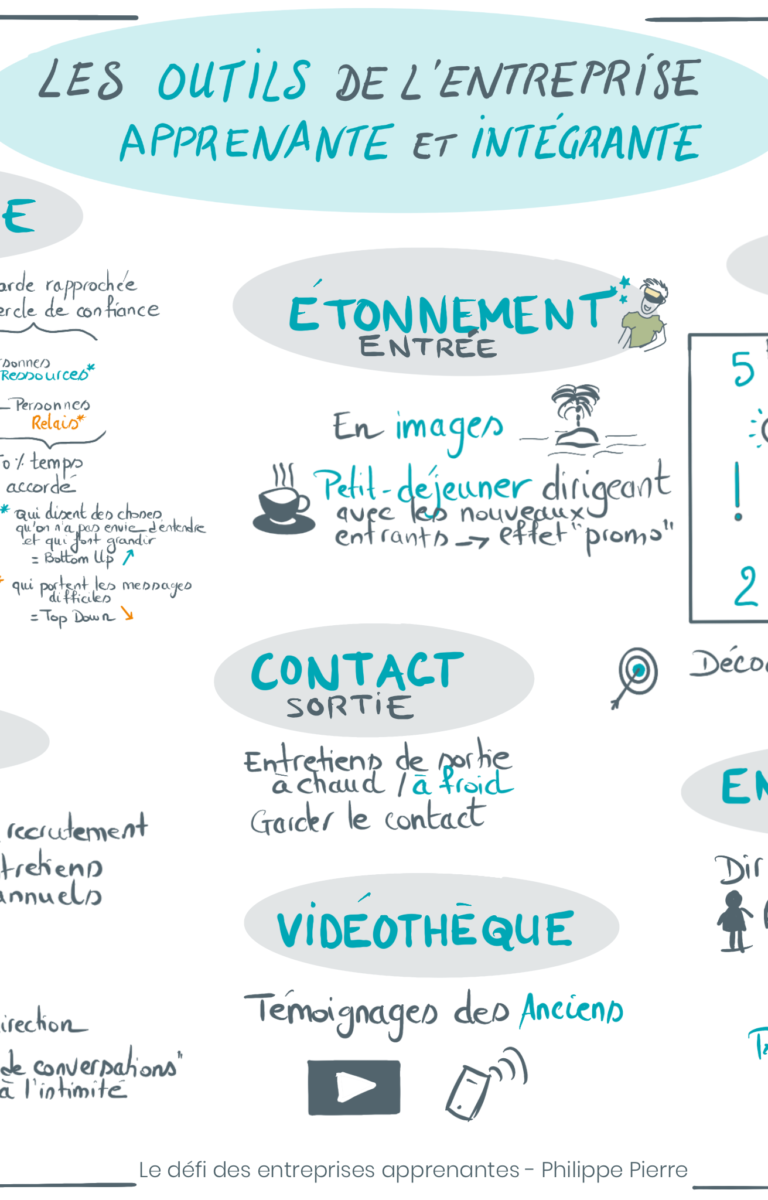 LES OUTILS DE L'ENTREPRISE
APPRENANTE ET INTÉGRANTE
E
arde rapprochée
ercle de confiance
sonnes
Ressources*
Personnes
Relais*
0% temps
accordé
* qui disent des choses
qu'on n'a pas envie d'entendre
et qui font grandir
= Bottom Up
* qui portent les messages
difficiles
= Top Down
recrutement
tretiens
annuels
irection
de conversations"
à l'intimité
ÉTONNEMENT
ENTRÉE
En images
Petit-déjeuner dirigeant
avec les nouveaux
entrants → effet "promo"
CONTACT
SORTIE
Entretiens de sortie
à chaud / à froid
Garder le contact
VIDÉOTHÈQUE
Témoignages des Anciens
5
!
2
Déco
EN
Dir
Le défi des entreprises apprenantes - Philippe Pierre